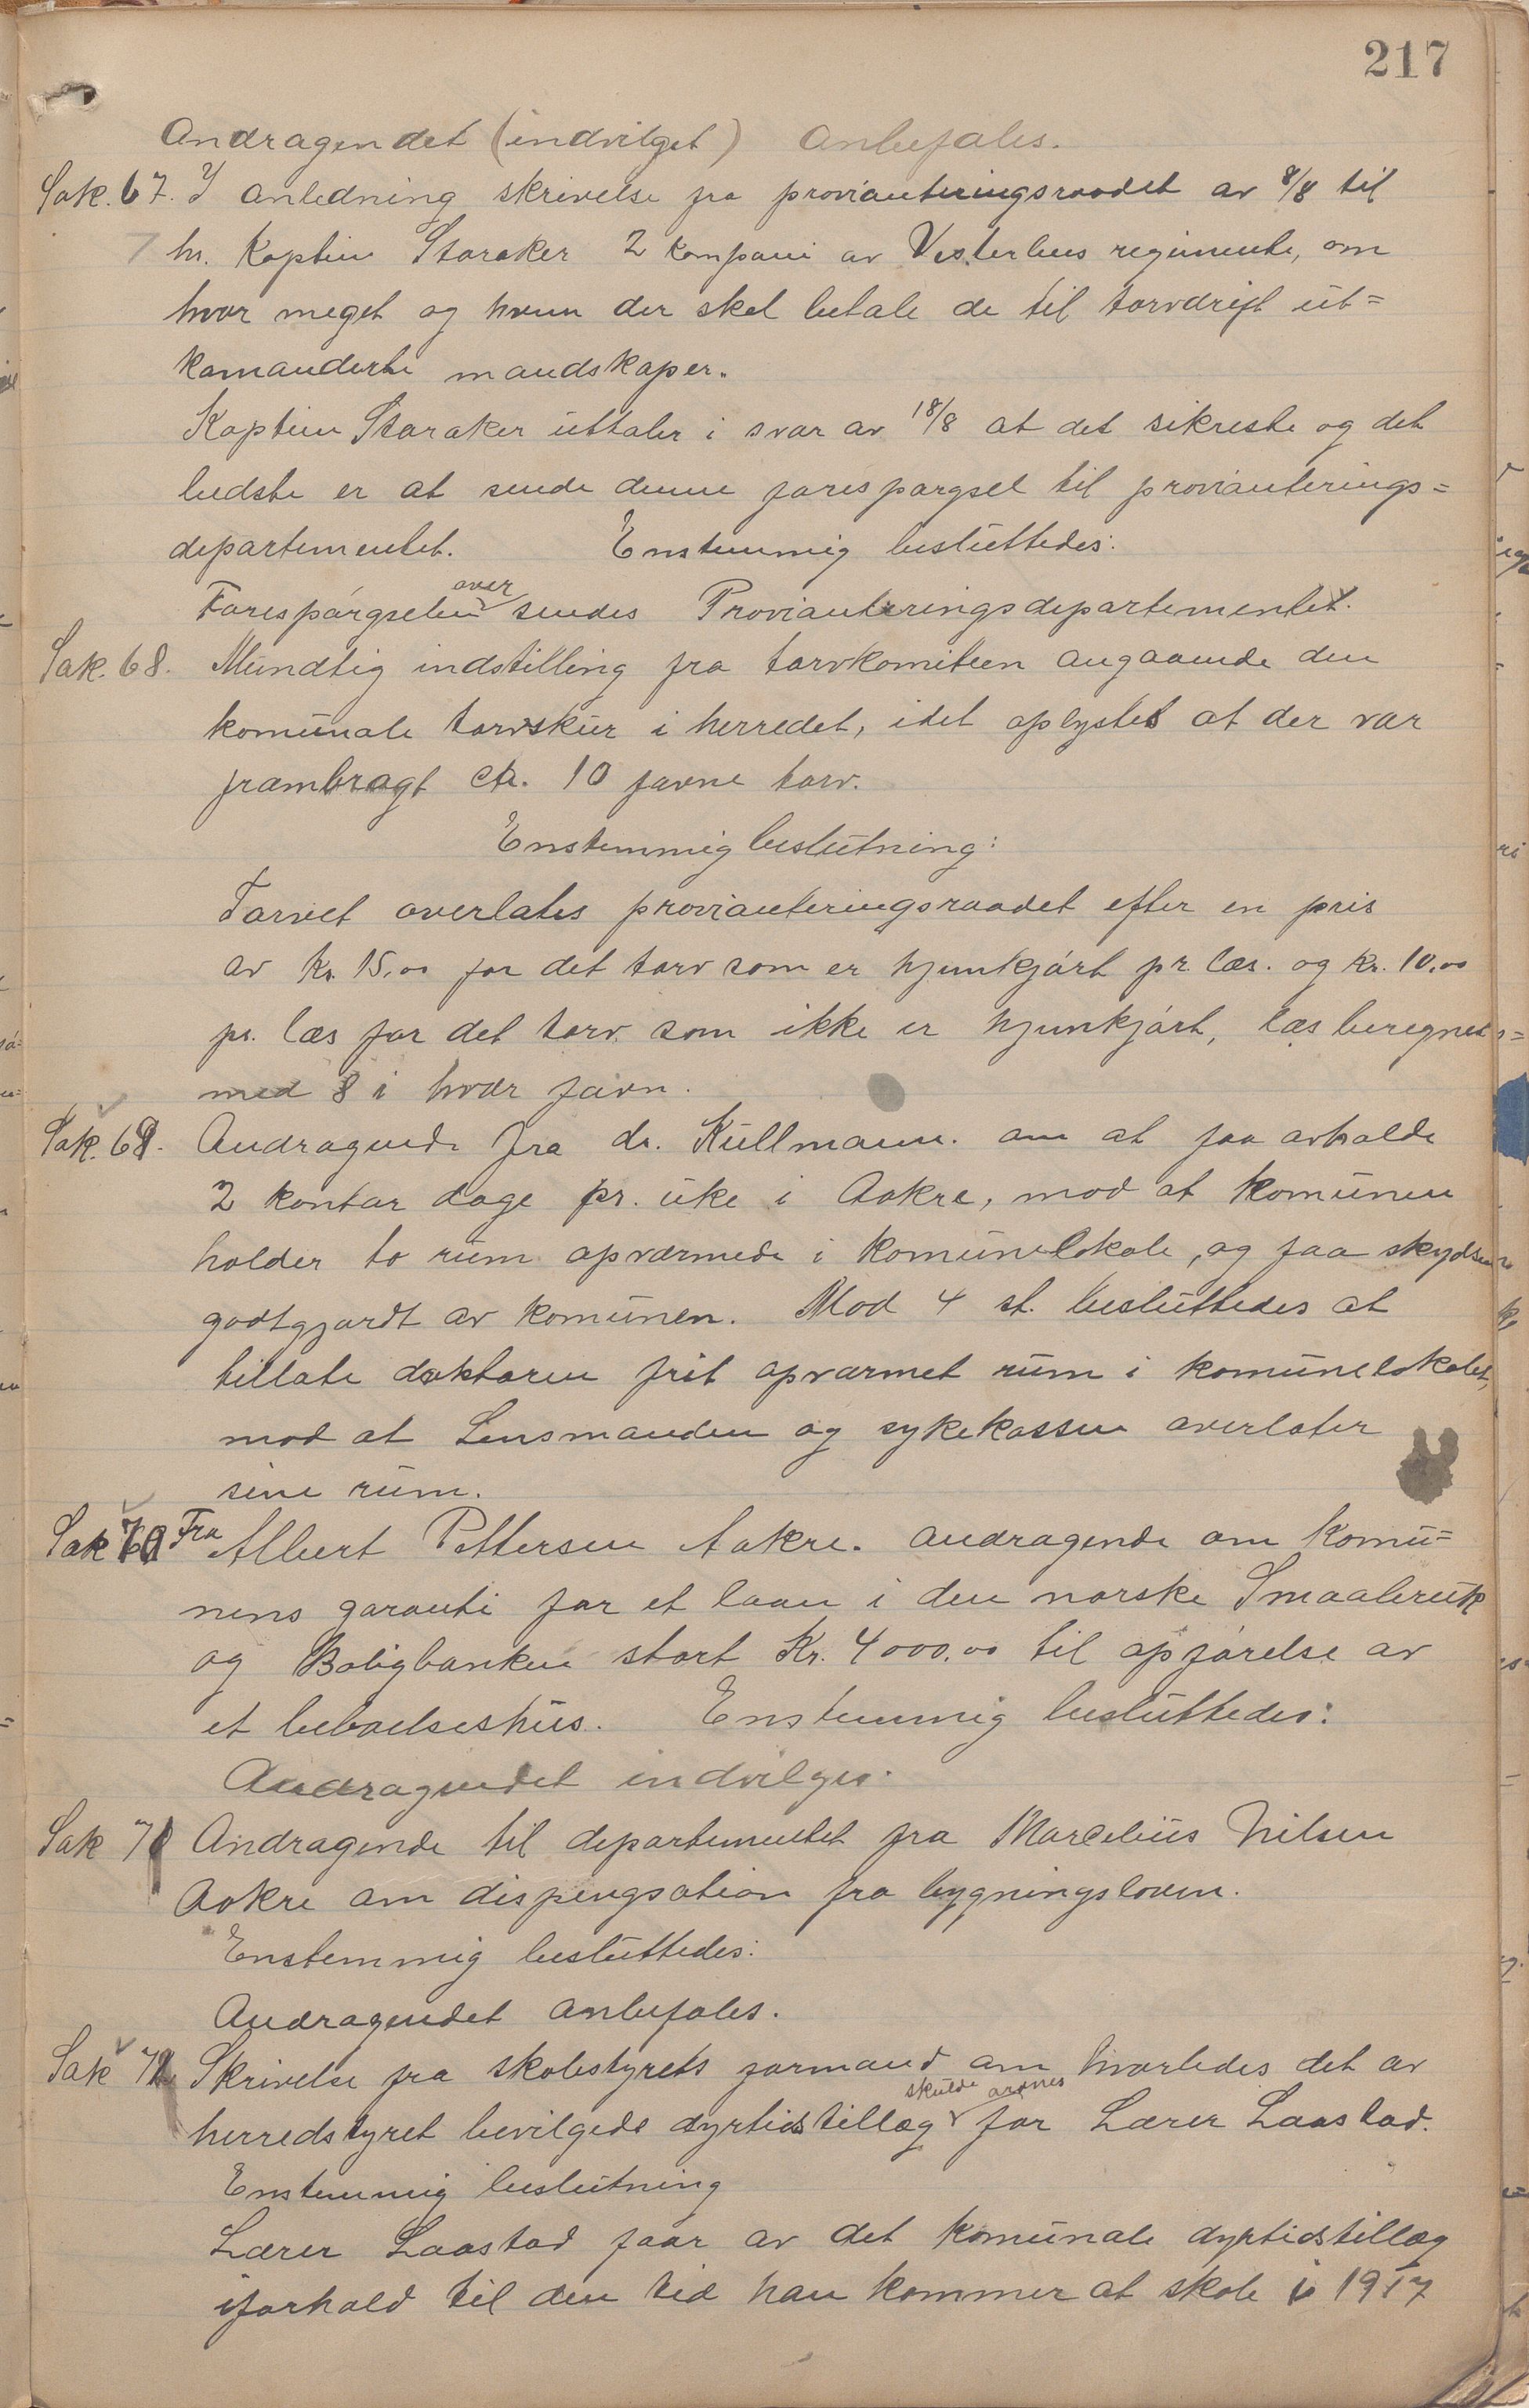 217
Andragendet (indvilget) anbefales.
Sak. 67. I anledning skrivelse fra provianteringsraadet av 8/8 til
hr. Kaptein Staraker 2 kompani av Vesterlens regimente, om
hvor meget og hvem der skal betale de til torvdrift ut=
komanderte mandskaper.
Kaptein Staraker uttaler i svar av 18/8 at det sikreste og det
bedste er at sende denne forespørgsel til provianterings=
departementet. Enstemmig besluttedes:
Forespørgselen over sendes Provianteringsdepartementet.
Sak. 68. Mundtlig indstilling fra torvkomiteen angaaende den
komunale torvskur i herredet, idet oplystes at der var
frambragt ca. 10 favne torv.
Enstemmig beslutning:
Torvet overlates provianteringsraadet efter en pris
av kr. 15,00 for det torv som er hjemkjørt pr. læs. og kr. 10,00
pr. læs for det torv som ikke er hjemkjørt, læs beregnes
med 8 i hver favn.
Sak. 69. Andragende fra dr. Kullmann. om at faa avholde
2 kontor dage pr. uke i Aakre, mod at komunen
holder to rum opvarmede i komunelokale, og faa skydsen
godtgjordt av komunen. Mod 4 st. besluttedes at
tillate doktoren frit opvarmet rum i komunelokalet,
mod at Lensmanden og sykekassen overlater
sine rum.
Sak 70 Fra Albert Pettersen Aakre. andragende om komu=
nens garanti for et laan i den norske Smaabruk
og Boligbanken stort Kr. 4000.00 til opførelse av
et beboelseshus. Enstemmig besluttedes:
Andragendet indvilges.
Sak 71 Andragende til departementet fra Marcelius Nilsen
Aakre om dispengsation fra bygningsloven.
Enstemmig besluttedes:
Andragendet anbefales.
Sak 72 Skrivelse fra skolestyrets formand om hvorledes det av
herredstyret bevilgede dyrtidstillæg skulde ordnes for Lærer Laastad.
Enstemmig beslutning
Lærer Laastad faar av det komunale dyrtidstillæg
iforhold til den tid han kommer at skole i 1917